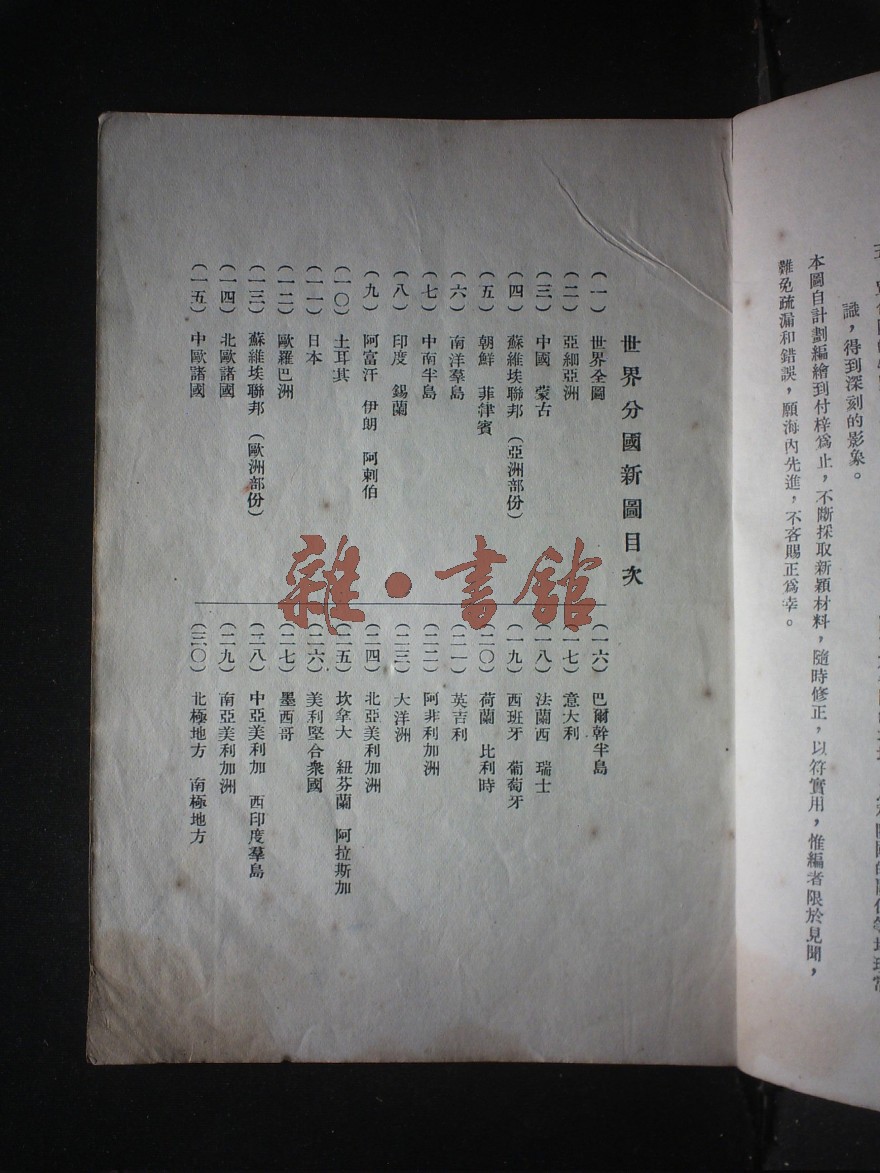 識，得到深刻的影象。
本圖自計劃編繪到付梓爲止，不斷採取新穎材料，隨時修正，以符實用，惟編者限於見聞，
難免疏漏和錯誤，願海內先進，不吝賜正爲幸。
世界分國新圖目次
（一）　世界全圖
（二）　亞細亞洲
（三）　中國　蒙古
（四）　蘇維埃聯邦（亞洲部份）
（五）　朝鮮　菲律賓
（六）　南洋羣島
（七）　中南半島
（八）　印度　錫蘭
（九）　阿富汗　伊朗　阿剌伯
（一〇）　土耳其
（一一）　日本
（一二）　歐羅巴洲
（一三）　蘇維埃聯邦（歐洲部份）
（一四）　北歐諸國
（一五）　中歐諸國
（一六）　巴爾幹半島
（一七）　意大利
（一八）　法蘭西　瑞士
（一九）　西班牙　葡萄牙
（二〇）　荷蘭　比利時
（二一）　英吉利
（二二）　阿非利加洲
（二三）　大洋洲
（二四）　北亞美利加洲
（二五）　坎拿大　紐芬蘭　阿拉斯加
（二六）　美利堅合衆國
（二七）　墨西哥
（二八）　中亞美利加　西印度羣島
（二九）　南亞美利加洲
（三〇）　北極地方　南極地方
雜·書館